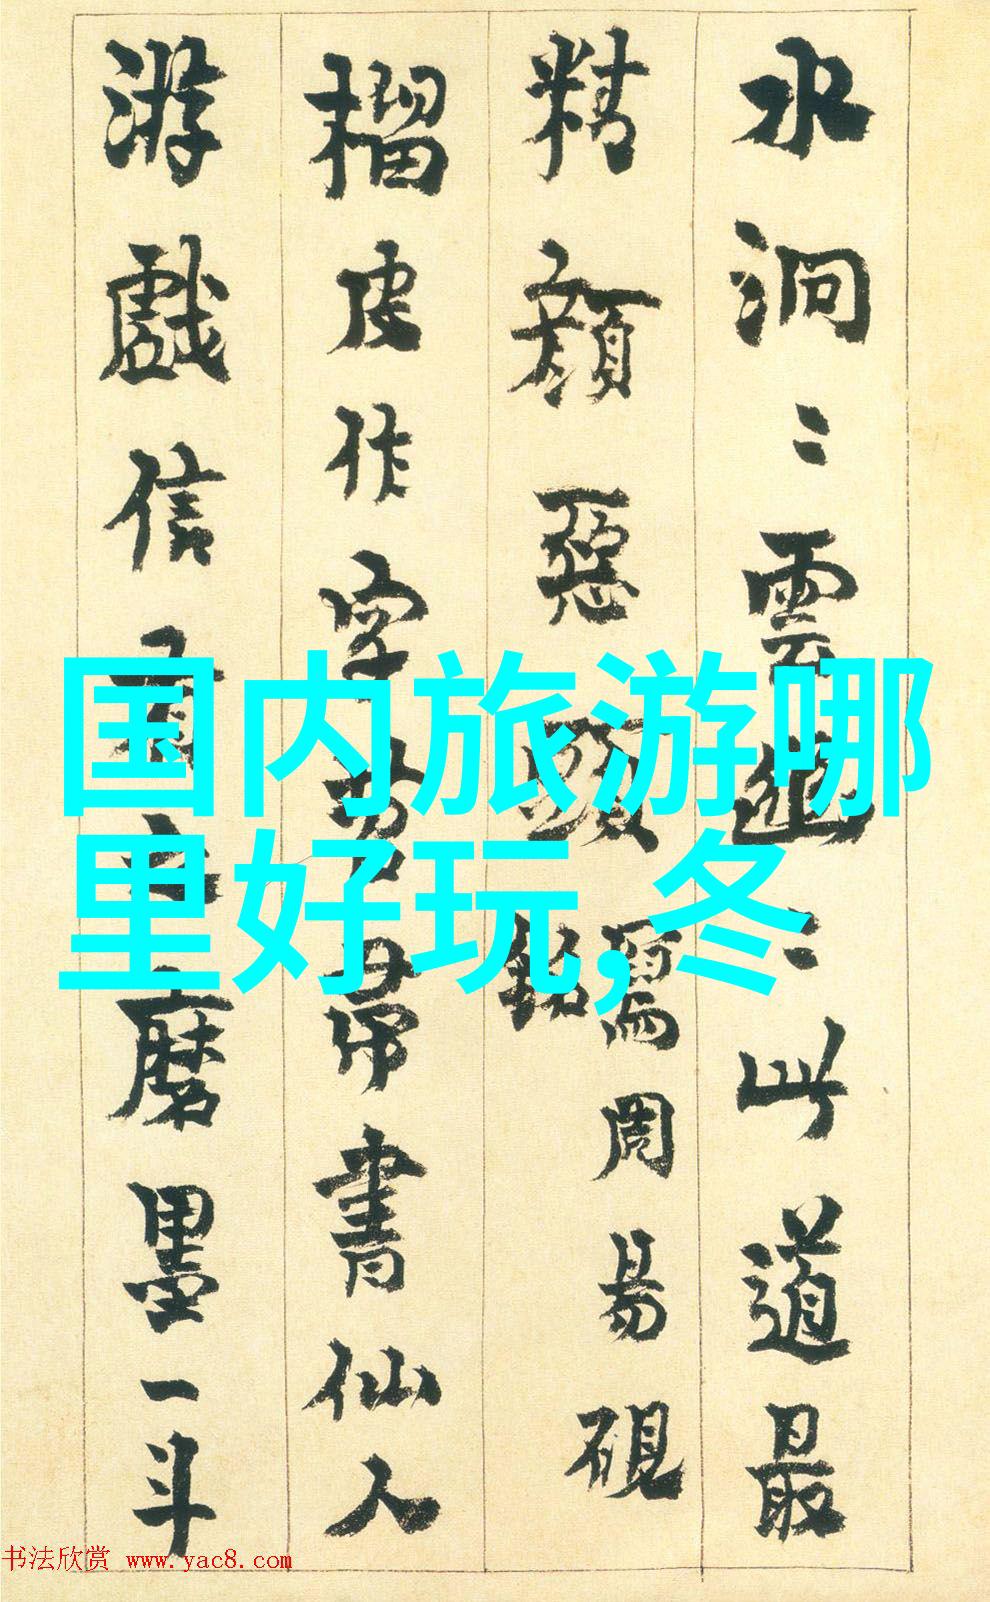 水洞〻雲〻此道最
精顏惡銘寫周易硯
榴皮作字帚書仙人
游戲信有之磨墨一斗
国内旅游哪
里好玩,冬
书法欣赏 www.yac8.com